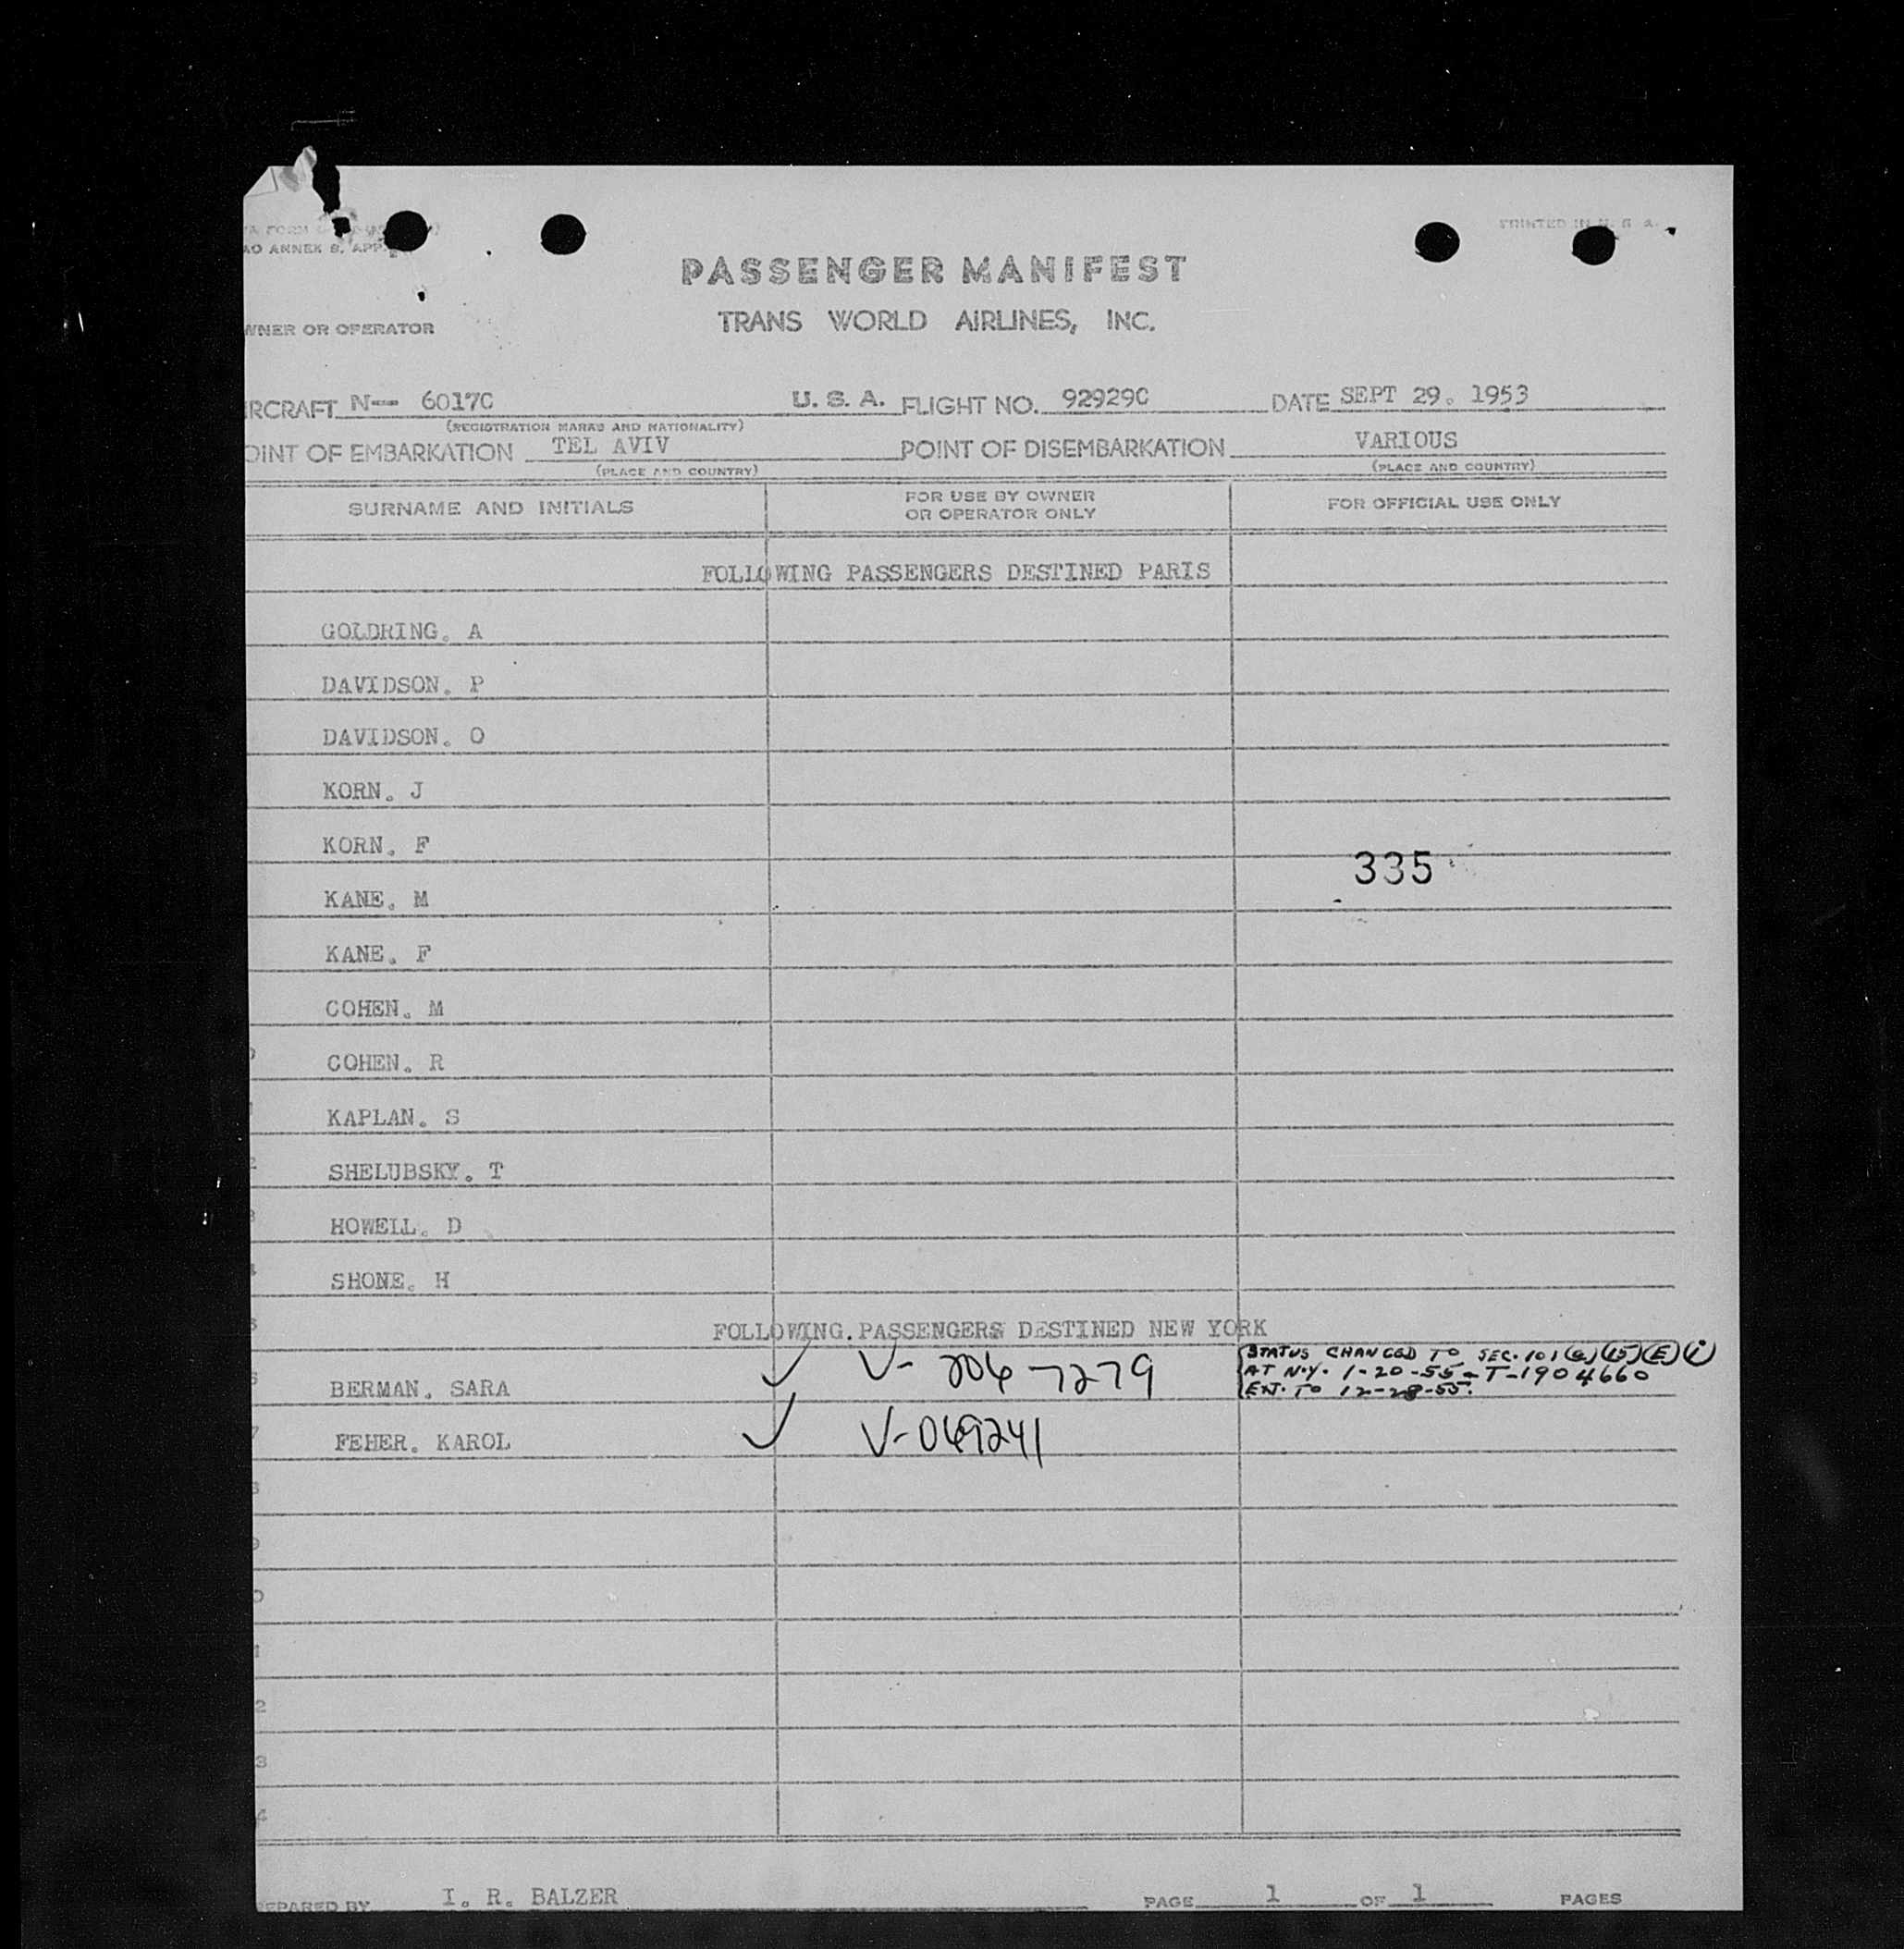 PRINTED IN U. S. A.
AO ANNEX 9, APP.
PASSENGER MANIFEST
WNER OR OPERATOR
TRANS WORLD AIRLINES, INC.
IRCRAFT N-- 6017C U. S. A. FLIGHT NO. 92929C DATE SEPT 29. 1953
(REGISTRATION MARKS AND NATIONALITY)
OINT OF EMBARKATION TEL AVIV POINT OF DISEMBARKATION VARIOUS
(PLACE AND COUNTRY) (PLACE AND COUNTRY)
SURNAME AND INITIALS FOR USE BY OWNER OR OPERATOR ONLY FOR OFFICIAL USE ONLY
FOLLOWING PASSENGERS DESTINED PARIS
GOLDRING. A
DAVIDSON. P
DAVIDSON. O
KORN. J
KORN. F
335
KANE. M
KANE. F
COHEN. M
COHEN. R
KAPLAN. S
SHELUBSKY. T
HOWELL. D
SHONE. H
FOLLOWING. PASSENGERS DESTINED NEW YORK
BERMAN. SARA ✓ V- 206-7279
STATUS CHANGED TO SEC. 101(a)(15)(E)(i)
AT N.Y. 1-20-55 - T-1904660
EXT. TO 12-28-55.
FEHER. KAROL ✓ V-069241
2
3
4
EPARED BY I. R. BALZER PAGE 1 OF 1 PAGES